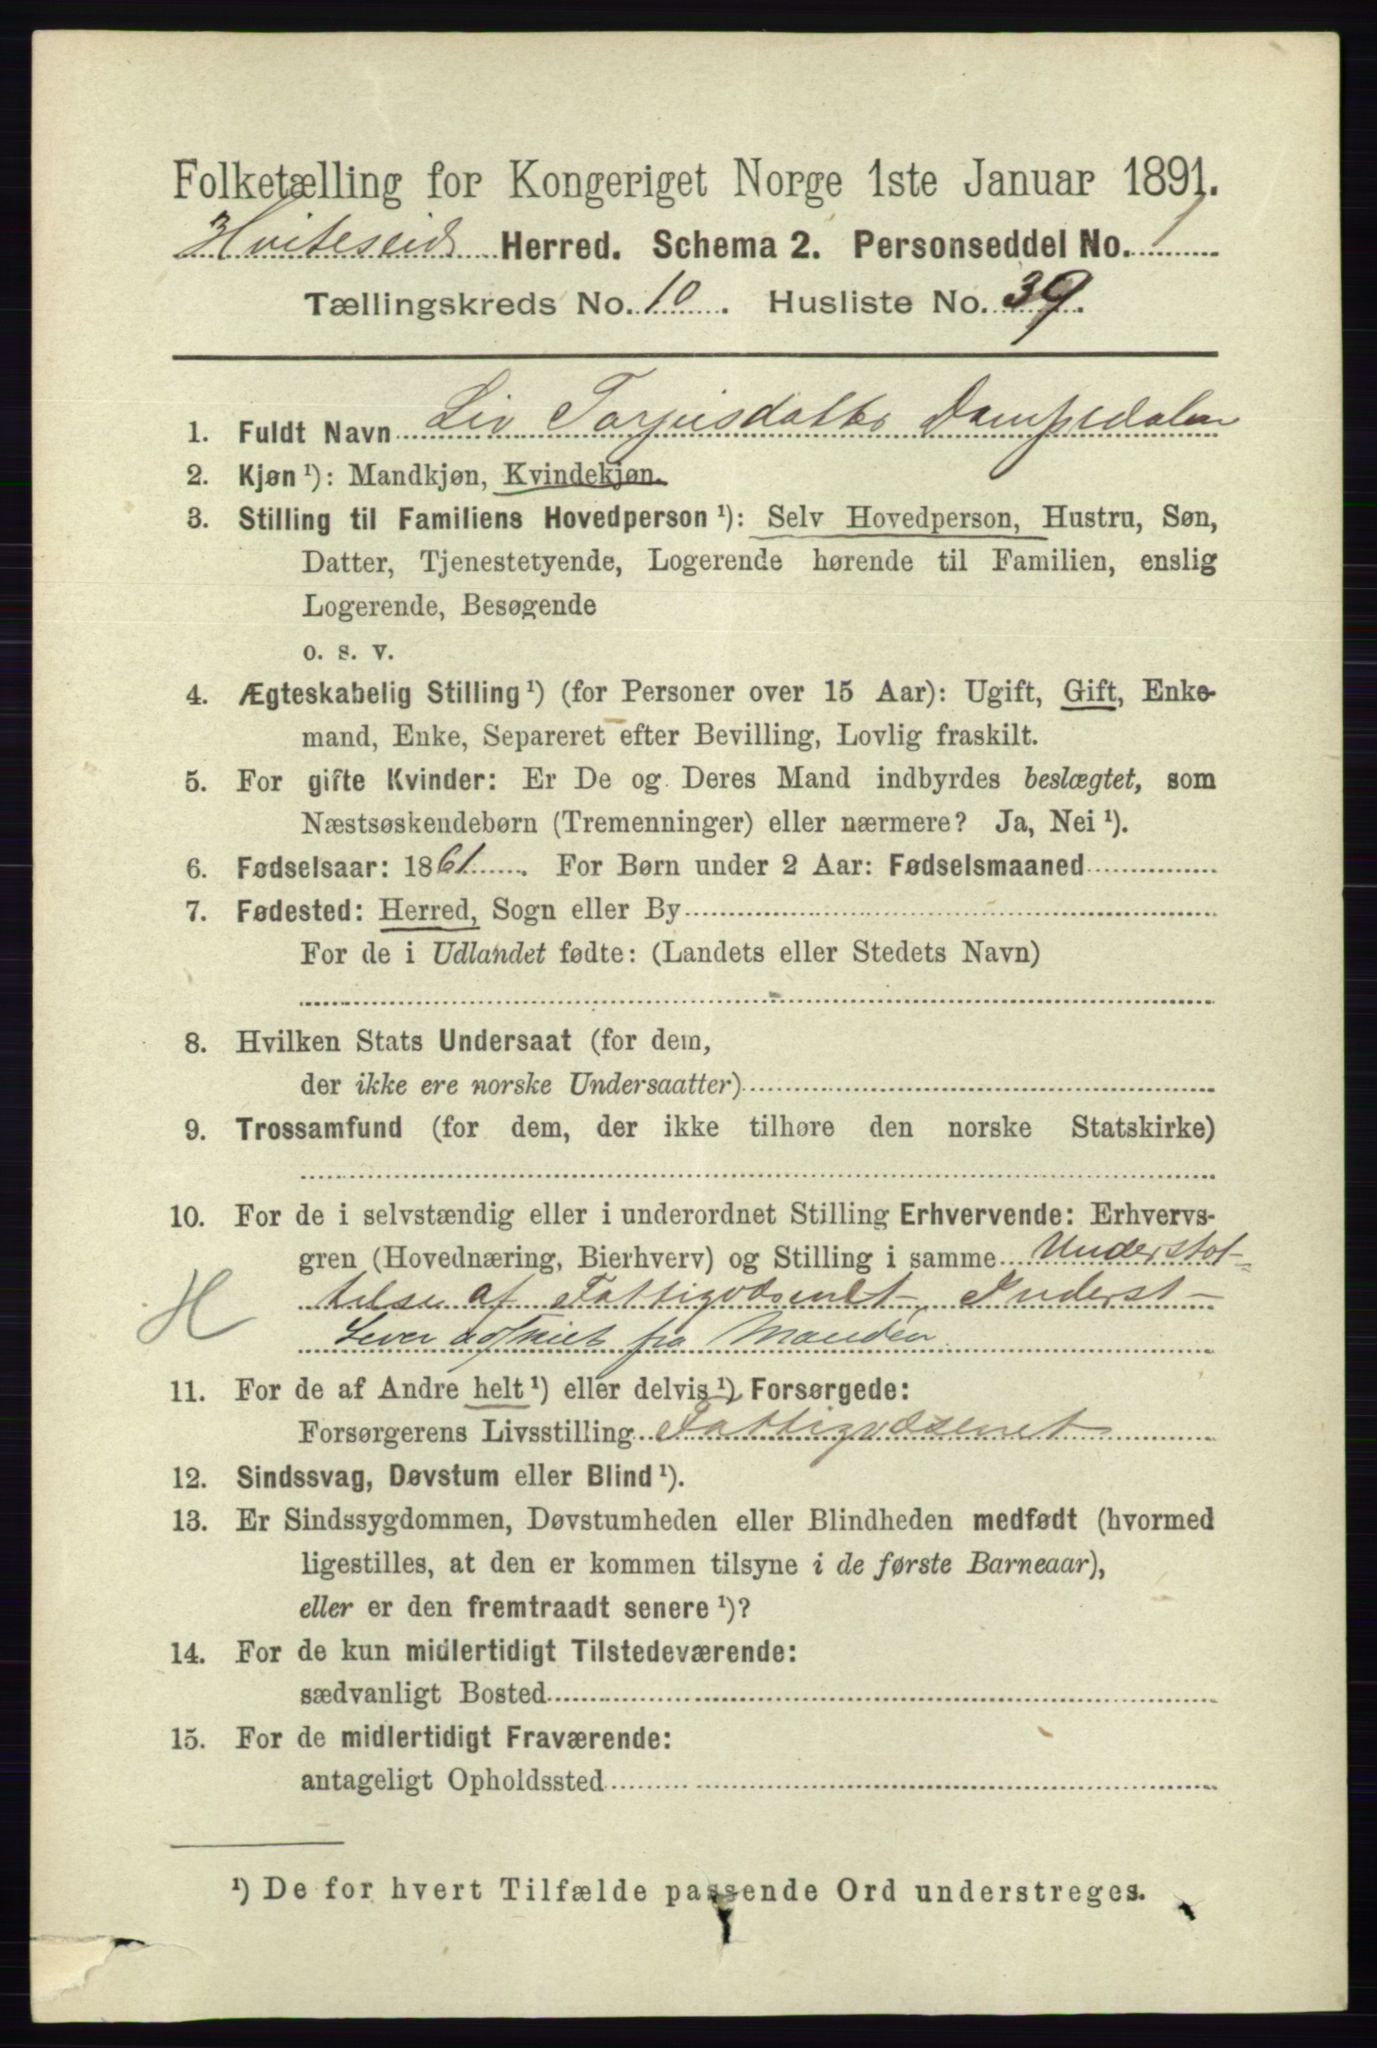 Folketælling for Kongeriget Norge 1ste Januar 1891.
Hviteseid Herred. Schema 2. Personseddel No. 1
Tællingskreds No. 10. Husliste No. 39.
1. Fuldt Navn Liv Torjusdatter
2. Kjøn ¹): Mandkjøn, Kvindekjøn.
3. Stilling til Familiens Hovedperson ¹): Selv Hovedperson, Hustru, Søn,
Datter, Tjenestetyende, Logerende hørende til Familien, enslig
Logerende, Besøgende
o. s. v.
4. Ægteskabelig Stilling ¹) (for Personer over 15 Aar): Ugift, Gift, Enke-
mand, Enke, Separeret efter Bevilling, Lovlig fraskilt.
5. For gifte Kvinder: Er De og Deres Mand indbyrdes beslægtet, som
Næstsøskendebørn (Tremenninger) eller nærmere? Ja, Nei ¹).
6. Fødselsaar: 1861. For Børn under 2 Aar: Fødselsmaaned
7. Fødested: Herred, Sogn eller By
For de i Udlandet fødte: (Landets eller Stedets Navn)
8. Hvilken Stats Undersaat (for dem,
der ikke ere norske Undersaatter)
9. Trossamfund (for dem, der ikke tilhøre den norske Statskirke)
10. For de i selvstændig eller i underordnet Stilling Erhvervende: Erhvervs-
gren (Hovednæring, Bierhverv) og Stilling i samme Understøt-
H telse af Fattigvæsenet, Inderst
Lever fra Manden
11. For de af Andre helt ¹) eller delvis ¹) Forsørgede:
Forsørgerens Livsstilling Fattigvæsenet
12. Sindssvag, Døvstum eller Blind ¹).
13. Er Sindssygdommen, Døvstumheden eller Blindheden medfødt (hvormed
ligestilles, at den er kommen tilsyne i de første Barneaar),
eller er den fremtraadt senere ¹)?
14. For de kun midlertidigt Tilstedeværende:
sædvanligt Bosted
15. For de midlertidigt Fraværende:
antageligt Opholdssted
¹) De for hvert Tilfælde passende Ord understreges.